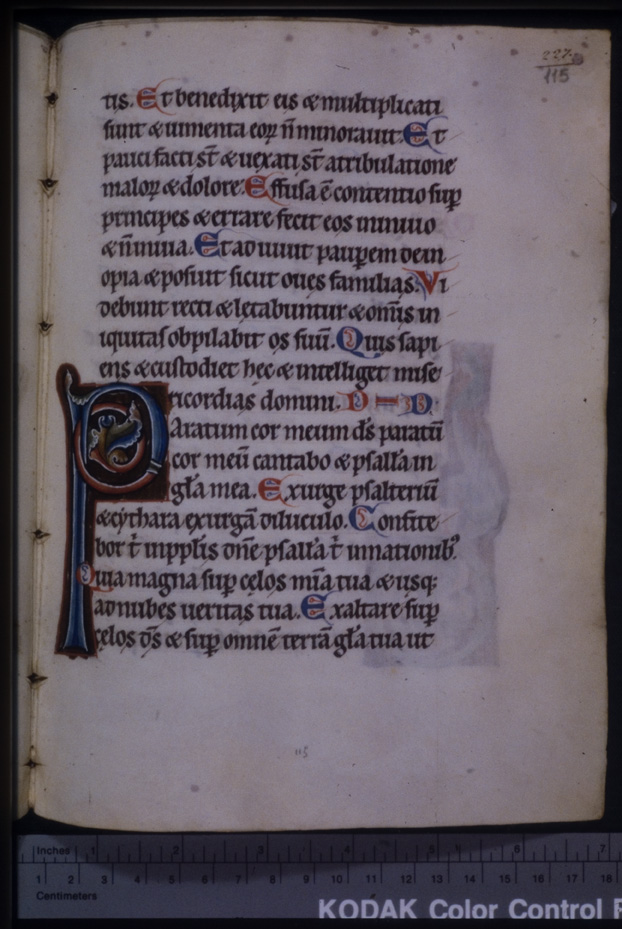 227.
115
tis. Et benedixit eis & multiplicati
sunt & iumenta eoꝝ ñ minorauit. Et
pauci facti st̄ & uexati st̄ atribulatione
maloꝝ & dolore. Effusa ē contentio sup̱
principes & errare fecit eos in inuio
& ñ in uia. Et adiuuit paup̱em de in
opia & posuit sicut oues familias. Vi
debunt recti & letabuntur & om̄is in
iquitas obpilabit os suū. Quis sapi
ens & custodiet hec & intelliget mise
ricordias domini.
Paratum cor meum d̄s paratū
cor meū cantabo & psallā in
gl̄a mea. Exurge psalteriū
& cythara exurgā diluculo. Confite
bor t̄ in pplis dn̄e psallā t̄ in nationibꝰ
Quia magna sup̱ celos mīa tua & usq:
ad nubes ueritas tua. Exaltare sup̱
celos d̄s & sup̱ omnē terrā gl̄a tua ut
115
Inches 1 2 3 4 5 6 7
1 2 3 4 5 6 7 8 9 10 11 12 13 14 15 16 17 18
Centimeters
KODAK Color Control